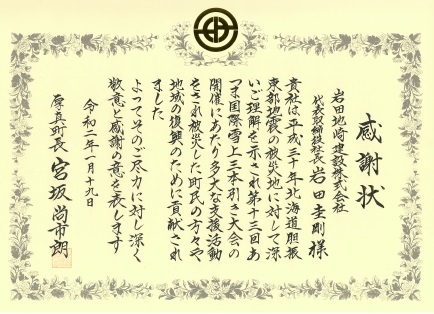 感謝状
岩田地崎建設株式会社
代表取締役社長 岩田圭剛 様
貴社は平成三十年北海道胆振
東部地震の被災地に対して深
いご理解を示され第十三回あ
つま国際雪上三本引き大会の
開催にあたり多大な支援活動
をされ被災した町民の方々や
地域の復興のために貢献され
ました
よってそのご尽力に対し深く
敬意と感謝の意を表します
令和二年一月十九日
厚真町長 宮坂尚市朗